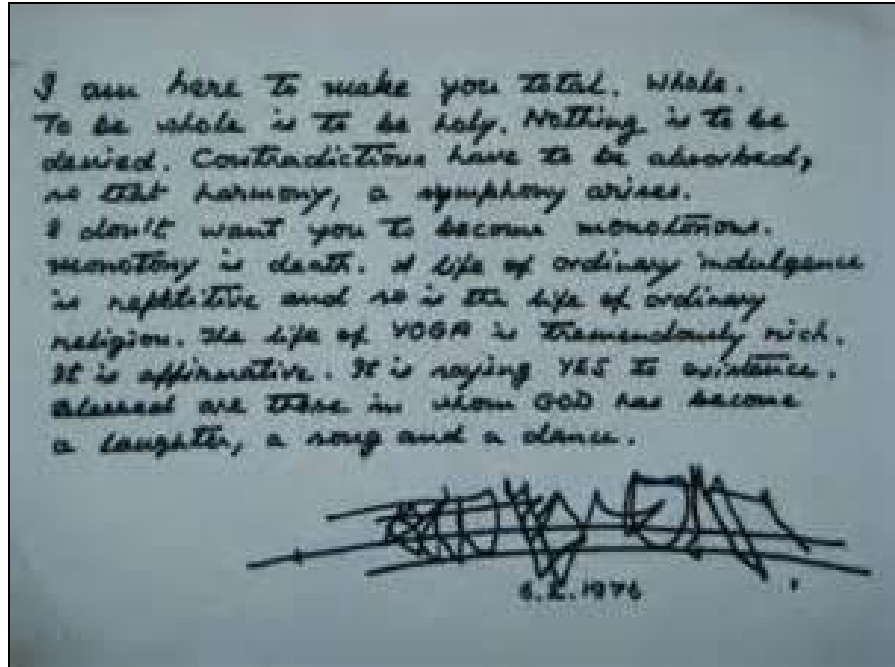 I am here to make you total. Whole.
To be whole is to be holy. Nothing is to be
denied. Contradictions have to be absorbed,
so that harmony, a symphony arises.
I don't want you to become monotonous.
monotony is death. A life of ordinary indulgence
is repetitive and so is the life of ordinary
religion. The life of YOGA is tremendously rich.
It is affirmative. It is saying YES to existence.
Blessed are those in whom GOD has become
a laughter, a song and a dance.
1976